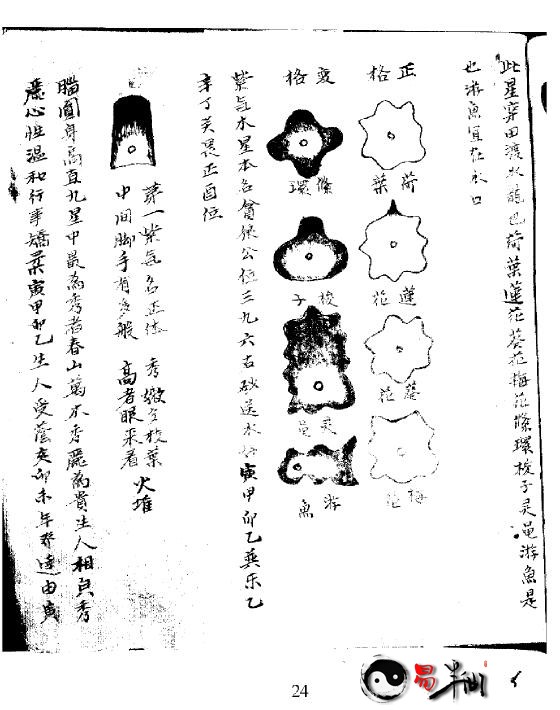 此星穿田渡水龍也荷葉蓮花葵花梅花絛環梭子灵黾游魚是
也游魚宜在水口
正格
荷葉
蓮花
葵花
梅花
変格
絛環
梭子
灵黾
游魚
紫气木星本名會狠公位三九六古砂送水好寅甲卯乙巽乐乙
辛丁关畏正酉位
第一紫気名正体 秀嫩冬枝葉
中间脚手有多般 高者眼来看 火堆
腦圓身高直九星中最為秀者春山萬木秀麗為貴生人相貞秀
麗心性温和行事矯柔寅甲卯乙生人受蔭亥卯未年發達由寅
24
易半仙